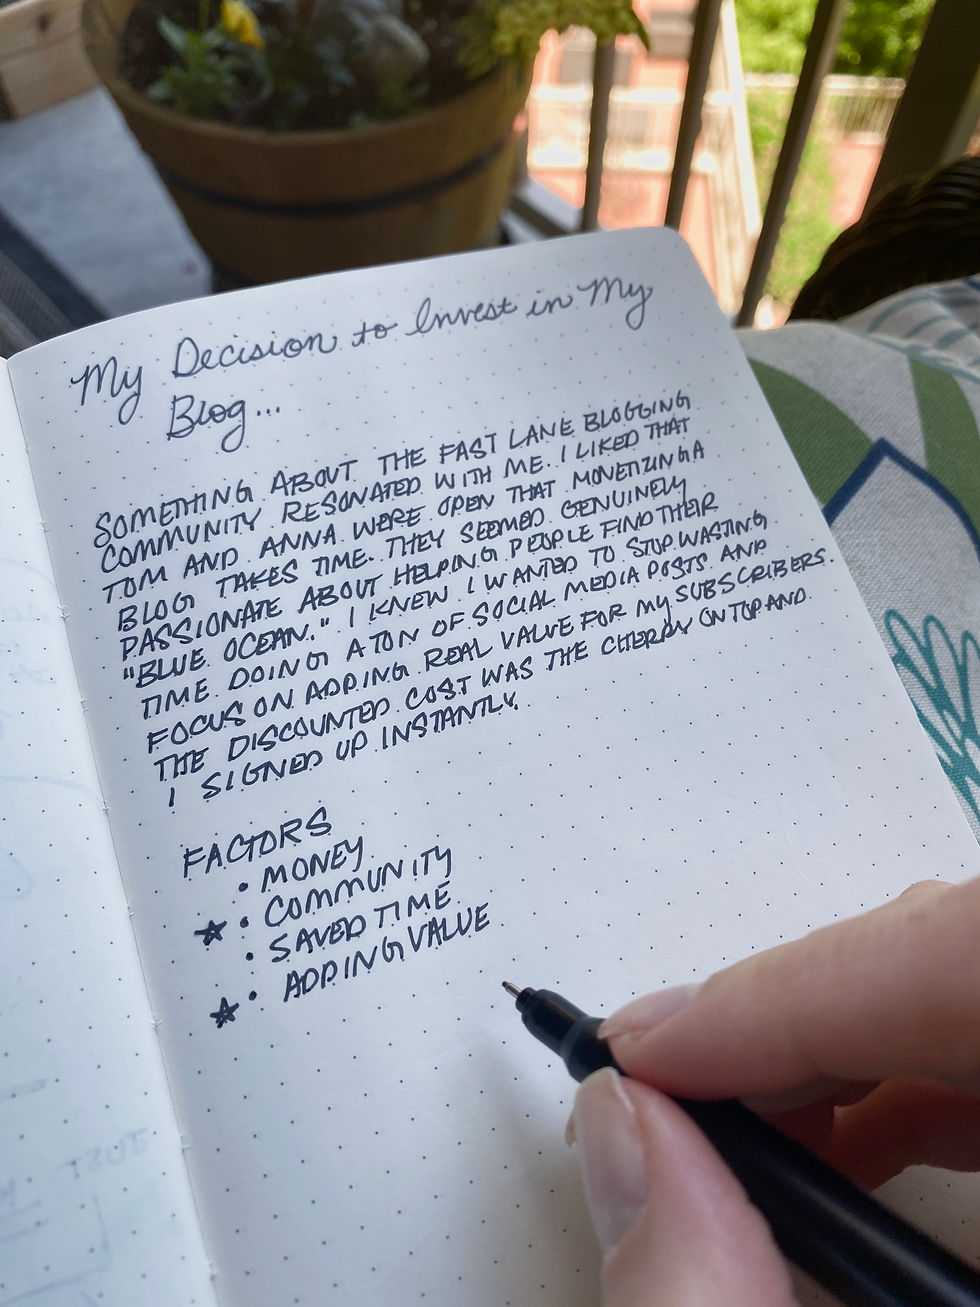 My Decision to Invest in My
Blog...
SOMETHING ABOUT THE FAST LANE BLOGGING
COMMUNITY RESONATED WITH ME. I LIKED THAT
TOM AND ANNA WERE OPEN THAT MONETIZING A
BLOG TAKES TIME. THEY SEEMED GENUINELY
PASSIONATE ABOUT HELPING PEOPLE FIND THEIR
"BLUE OCEAN." I KNEW I WANTED TO STOP WASTING
TIME DOING A TON OF SOCIAL MEDIA POSTS AND
FOCUS ON ADDING REAL VALUE FOR MY SUBSCRIBERS.
THE DISCOUNTED COST WAS THE CHERRY ON TOP AND
I SIGNED UP INSTANTLY.
FACTORS
• MONEY
★ • COMMUNITY
• SAVED TIME
★ • ADDING VALUE